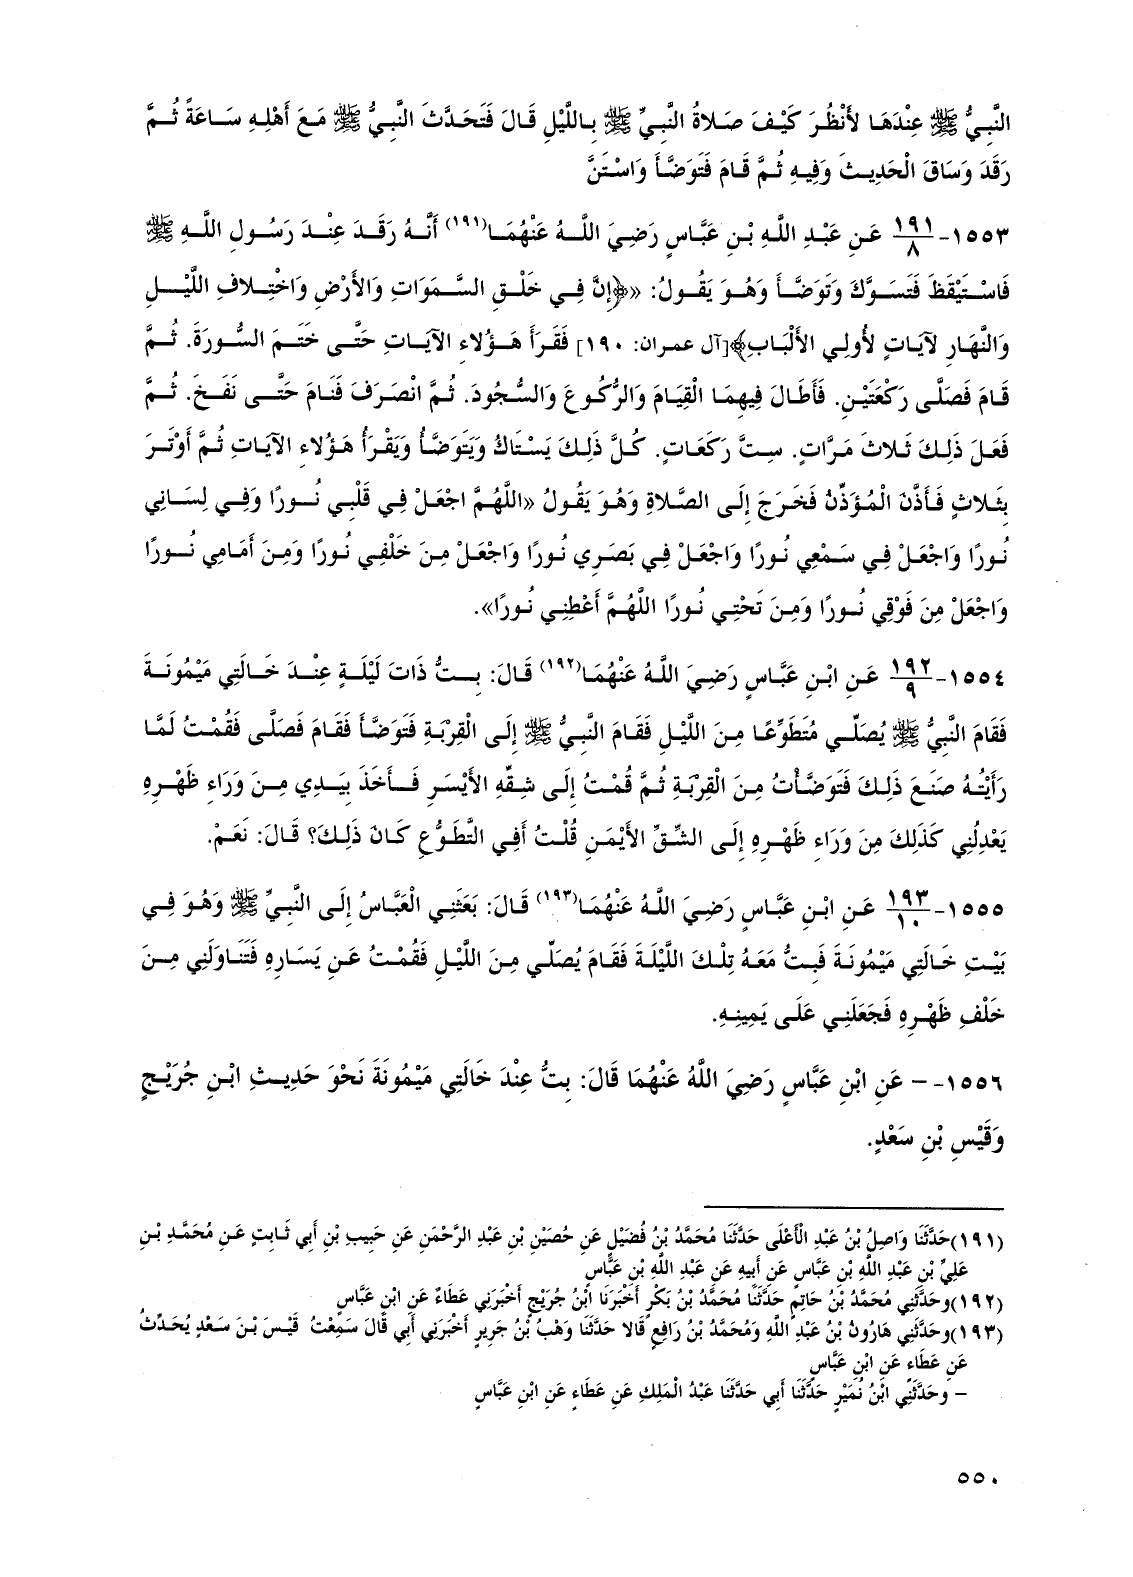 النَّبِيُّ ﷺ عِنْدَهَا لأَنْظُرَ كَيْفَ صَلاةُ النَّبِيِّ ﷺ بِاللَّيْلِ قَالَ فَتَحَدَّثَ النَّبِيُّ ﷺ مَعَ أَهْلِهِ سَاعَةً ثُمَّ
رَقَدَ وَسَاقَ الْحَدِيثَ وَفِيهِ ثُمَّ قَامَ فَتَوَضَّأَ وَاسْتَنَّ
١٥٥٣- ١٩١/٨ عَنِ عَبْدِ اللَّهِ بْنِ عَبَّاسٍ رَضِيَ اللَّهُ عَنْهُمَا(١٩١) أَنَّهُ رَقَدَ عِنْدَ رَسُولِ اللَّهِ ﷺ
فَاسْتَيْقَظَ فَتَسَوَّكَ وَتَوَضَّأَ وَهُوَ يَقُولُ: «﴿إِنَّ فِي خَلْقِ السَّمَوَاتِ وَالأَرْضِ وَاخْتِلافِ اللَّيْلِ
وَالنَّهَارِ لآيَاتٍ لأُولِي الأَلْبَابِ﴾[آل عمران: ١٩٠] فَقَرَأَ هَؤُلاءِ الآيَاتِ حَتَّى خَتَمَ السُّورَةَ. ثُمَّ
قَامَ فَصَلَّى رَكْعَتَيْنِ. فَأَطَالَ فِيهِمَا الْقِيَامَ وَالرُّكُوعَ وَالسُّجُودَ. ثُمَّ انْصَرَفَ فَنَامَ حَتَّى نَفَخَ. ثُمَّ
فَعَلَ ذَلِكَ ثَلاثَ مَرَّاتٍ. سِتَّ رَكَعَاتٍ. كُلَّ ذَلِكَ يَسْتَاكُ وَيَتَوَضَّأُ وَيَقْرَأُ هَؤُلاءِ الآيَاتِ ثُمَّ أَوْتَرَ
بِثَلاثٍ فَأَذَّنَ الْمُؤَذِّنُ فَخَرَجَ إِلَى الصَّلاةِ وَهُوَ يَقُولُ «اللَّهُمَّ اجْعَلْ فِي قَلْبِي نُورًا وَفِي لِسَانِي
نُورًا وَاجْعَلْ فِي سَمْعِي نُورًا وَاجْعَلْ فِي بَصَرِي نُورًا وَاجْعَلْ مِنَ خَلْفِي نُورًا وَمِنَ أَمَامِي نُورًا
وَاجْعَلْ مِنَ فَوْقِي نُورًا وَمِنَ تَحْتِي نُورًا اللَّهُمَّ أَعْطِنِي نُورًا».
١٥٥٤- ١٩٢/٩ عَنِ ابْنِ عَبَّاسٍ رَضِيَ اللَّهُ عَنْهُمَا(١٩٢) قَالَ: بِتُّ ذَاتَ لَيْلَةٍ عِنْدَ خَالَتِي مَيْمُونَةَ
فَقَامَ النَّبِيُّ ﷺ يُصَلِّي مُتَطَوِّعًا مِنَ اللَّيْلِ فَقَامَ النَّبِيُّ ﷺ إِلَى الْقِرْبَةِ فَتَوَضَّأَ فَقَامَ فَصَلَّى فَقُمْتُ لَمَّا
رَأَيْتُهُ صَنَعَ ذَلِكَ فَتَوَضَّأْتُ مِنَ الْقِرْبَةِ ثُمَّ قُمْتُ إِلَى شِقِّهِ الأَيْسَرِ فَأَخَذَ بِيَدِي مِنَ وَرَاءِ ظَهْرِهِ
يَعْدِلُنِي كَذَلِكَ مِنَ وَرَاءِ ظَهْرِهِ إِلَى الشِّقِّ الأَيْمَنِ قُلْتُ أَفِي التَّطَوُّعِ كَانَ ذَلِكَ؟ قَالَ: نَعَمْ.
١٥٥٥- ١٩٣/١٠ عَنِ ابْنِ عَبَّاسٍ رَضِيَ اللَّهُ عَنْهُمَا(١٩٣) قَالَ: بَعَثَنِي الْعَبَّاسُ إِلَى النَّبِيِّ ﷺ وَهُوَ فِي
بَيْتِ خَالَتِي مَيْمُونَةَ فَبِتُّ مَعَهُ تِلْكَ اللَّيْلَةَ فَقَامَ يُصَلِّي مِنَ اللَّيْلِ فَقُمْتُ عَنِ يَسَارِهِ فَتَنَاوَلَنِي مِنَ
خَلْفِ ظَهْرِهِ فَجَعَلَنِي عَلَى يَمِينِهِ.
١٥٥٦- – عَنِ ابْنِ عَبَّاسٍ رَضِيَ اللَّهُ عَنْهُمَا قَالَ: بِتُّ عِنْدَ خَالَتِي مَيْمُونَةَ نَحْوَ حَدِيثِ ابْنِ جُرَيْجٍ
وَقَيْسِ بْنِ سَعْدٍ.
(١٩١)حَدَّثَنَا وَاصِلُ بْنُ عَبْدِ الْأَعْلَى حَدَّثَنَا مُحَمَّدُ بْنُ فُضَيْلٍ عَنِ حُصَيْنِ بْنِ عَبْدِ الرَّحْمَنِ عَنِ حَبِيبِ بْنِ أَبِي ثَابِتٍ عَنِ مُحَمَّدِ بْنِ
عَلِيِّ بْنِ عَبْدِ اللَّهِ بْنِ عَبَّاسٍ عَنِ أَبِيهِ عَنِ عَبْدِ اللَّهِ بْنِ عَبَّاسٍ
(١٩٢)وحَدَّثَنِي مُحَمَّدُ بْنُ حَاتِمٍ حَدَّثَنَا مُحَمَّدُ بْنُ بَكْرٍ أَخْبَرَنَا ابْنُ جُرَيْجٍ أَخْبَرَنِي عَطَاءٌ عَنِ ابْنِ عَبَّاسٍ
(١٩٣)وحَدَّثَنِي هَارُونُ بْنُ عَبْدِ اللَّهِ وَمُحَمَّدُ بْنُ رَافِعٍ قَالا حَدَّثَنَا وَهْبُ بْنُ جَرِيرٍ أَخْبَرَنِي أَبِي قَالَ سَمِعْتُ قَيْسَ بْنَ سَعْدٍ يُحَدِّثُ
عَنِ عَطَاءٍ عَنِ ابْنِ عَبَّاسٍ
– وحَدَّثَنِي ابْنُ نُمَيْرٍ حَدَّثَنَا أَبِي حَدَّثَنَا عَبْدُ الْمَلِكِ عَنِ عَطَاءٍ عَنِ ابْنِ عَبَّاسٍ
٥٥٠